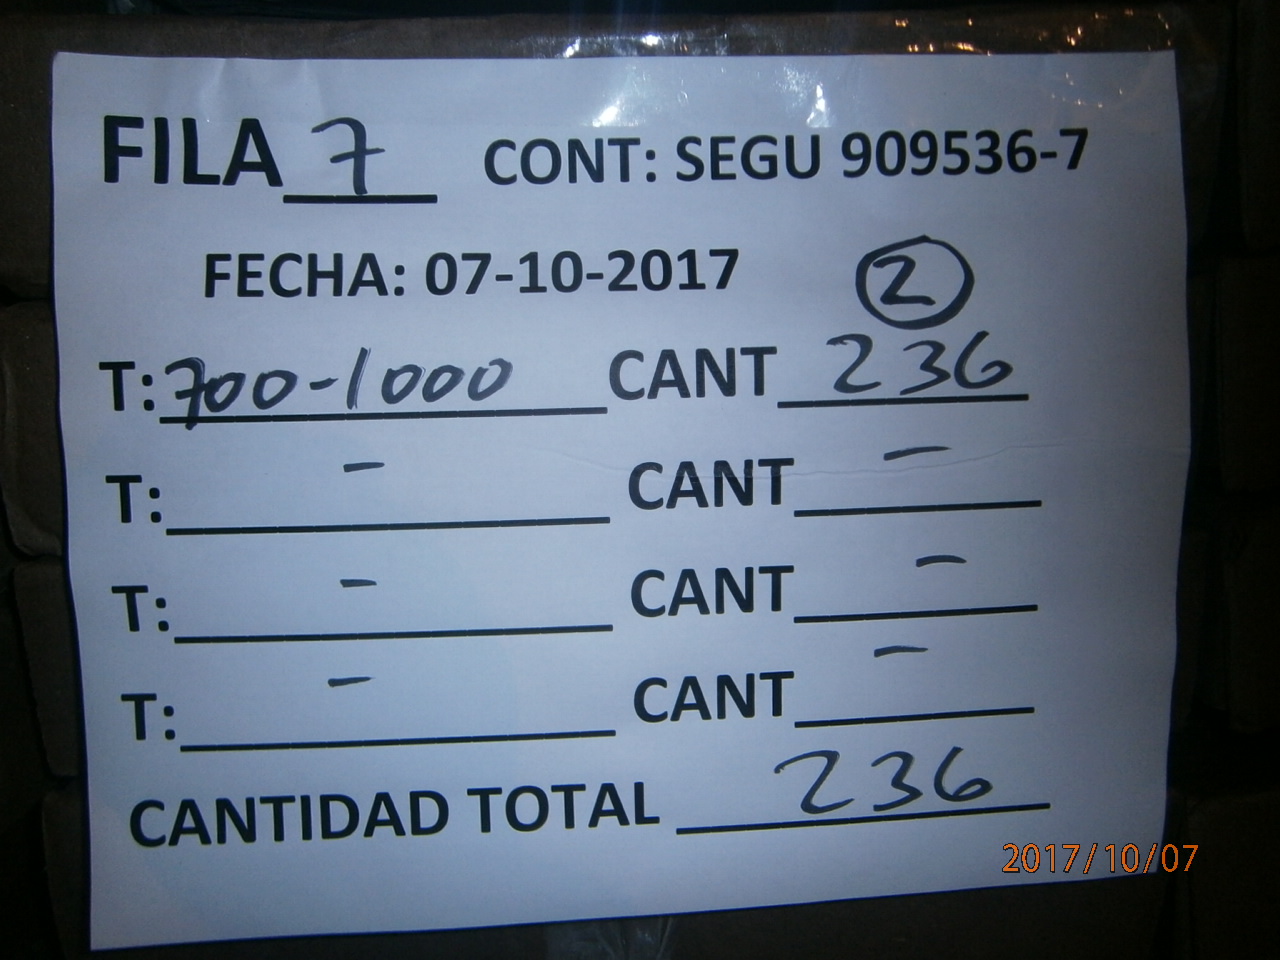 FILA 7 CONT: SEGU 909536-7
FECHA: 07-10-2017 2
T: 700-1000 CANT 236
T: - CANT -
T: - CANT -
T: - CANT -
CANTIDAD TOTAL 236
2017/10/07